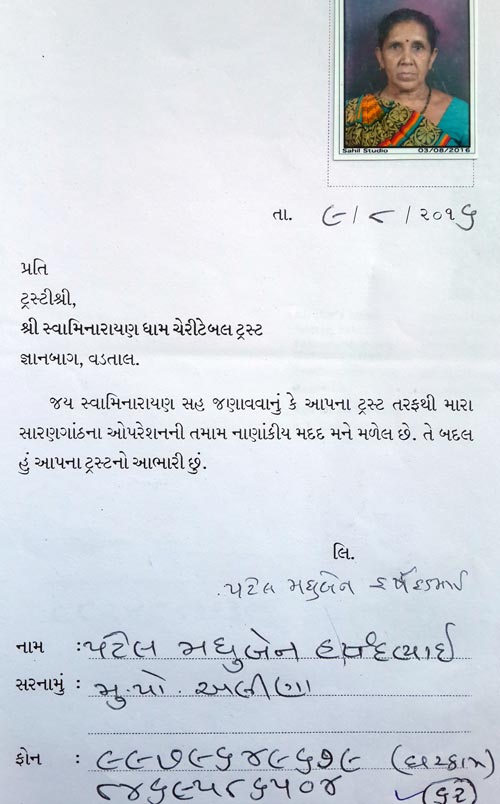 Sahil Studio 03/08/2016
તા. ૯/૮/૨૦૧૬
પ્રતિ
ટ્રસ્ટીશ્રી,
શ્રી સ્વામિનારાયણ ધામ ચેરીટેબલ ટ્રસ્ટ
જ્ઞાનબાગ, વડતાલ.
જય સ્વામિનારાયણ સહ જણાવવાનું કે આપના ટ્રસ્ટ તરફથી મારા
સારણગાંઠના ઓપરેશનની તમામ નાણાંકીય મદદ મને મળેલ છે. તે બદલ
હું આપના ટ્રસ્ટનો આભારી છું.
લિ.
પટેલ મધુબેન
નામ : પટેલ મધુબેન
સરનામું : મુ.પો. અલીણા
ફોન : ૯૯૭૯૬૪૯૬૭૯